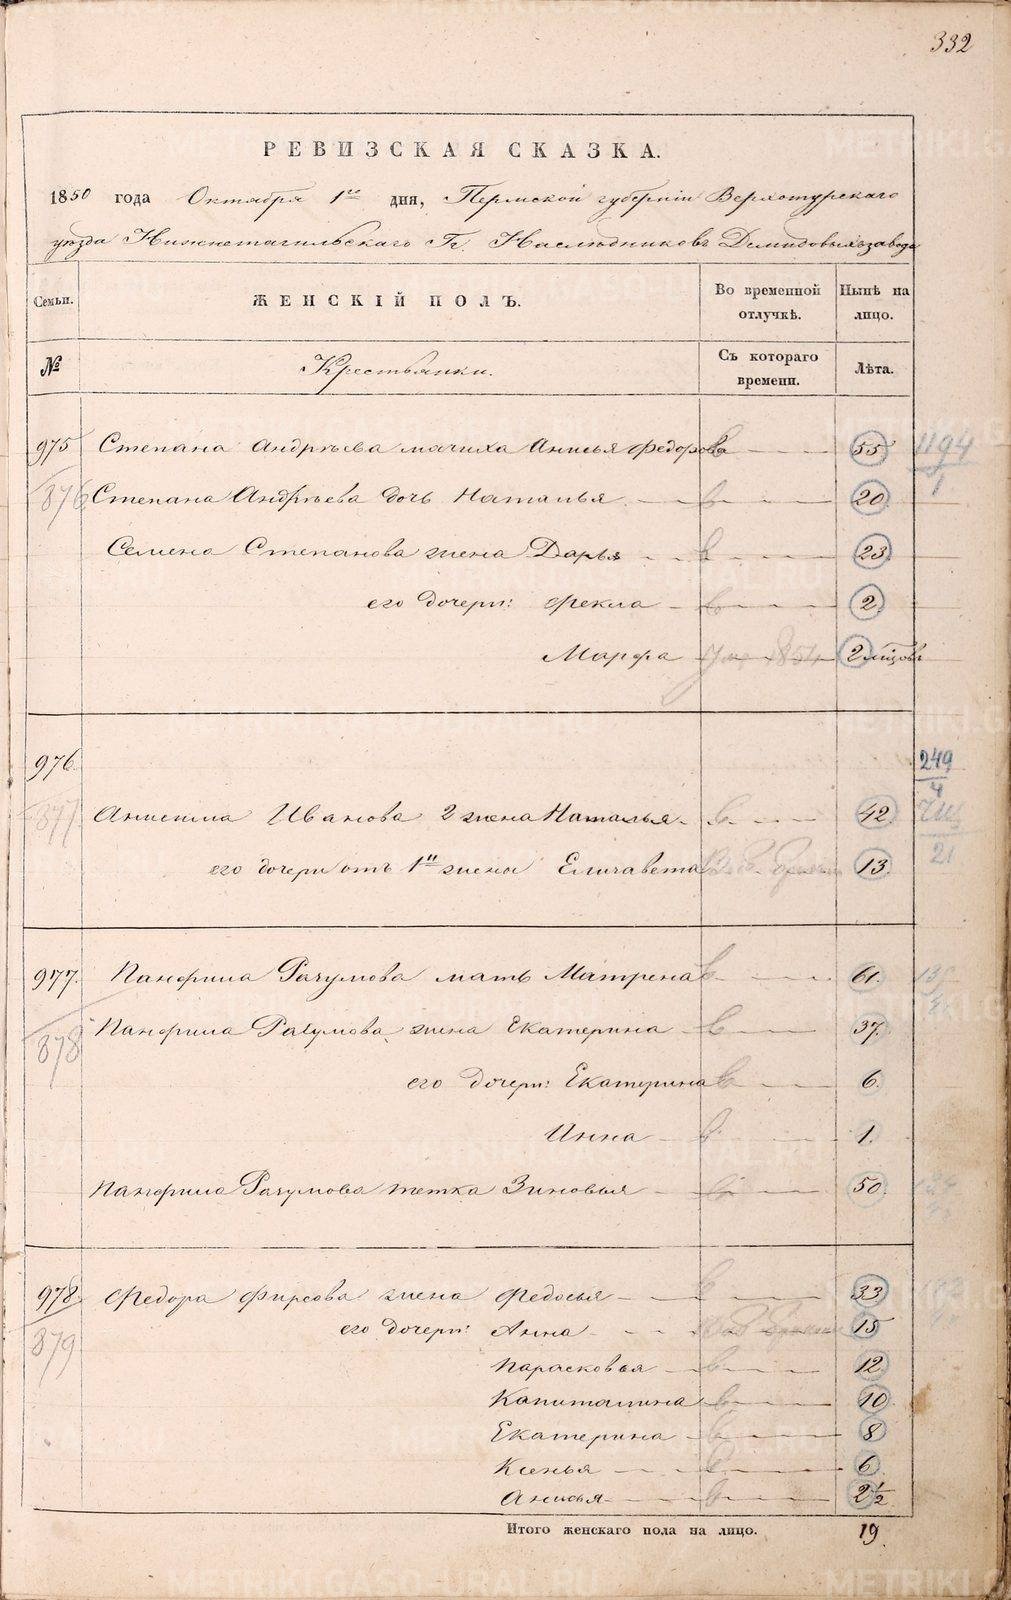 332
РЕВИЗСКАЯ СКАЗКА.
1850 года Октября 1го дня, Пермской губернiи Верхотурскаго
уѣзда Нижнетагильскаго Гг. Наслѣдниковъ Демидовыхъ завода
Семьи. ЖЕНСКІЙ ПОЛЪ. Во временной отлучкѣ. Нынѣ на лицо.
№ Крестьянки. Съ котораго времени. Лѣта.
975 Степана Андрѣева мачиха Анисья Федорова 55 1194/1
876 Степана Андрѣева дочь Наталья 20
Семена Степанова жена Дарья 23
его дочери: Фекла 2
Марфа ум 1854 2 мѣсяцовъ
976. 249/4
877 Анисима Иванова 2 жена Наталья 42. 21
его дочери отъ 1й жены Елизавета 13.
977. Панфила Разумова мать Матрена 61.
878 Панфила Разумова жена Екатерина 37.
его дочери: Екатерина 6.
Инна 1.
Панфила Разумова тетка Зиновья 50.
978. Федора Фирсова жена Федосья 33
879 его дочери: Анна 15
Парасковья 12
Капиталина 10
Екатерина 8
Ксенья 6
Анисья 2 1/2
Итого женскаго пола на лицо. 19.
METRIKI.GASO-URAL.RU